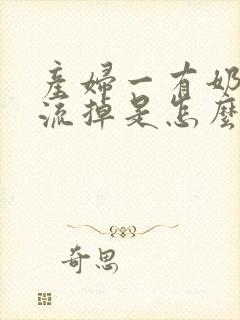 產婦一有奶
流掉是怎麼
奇思